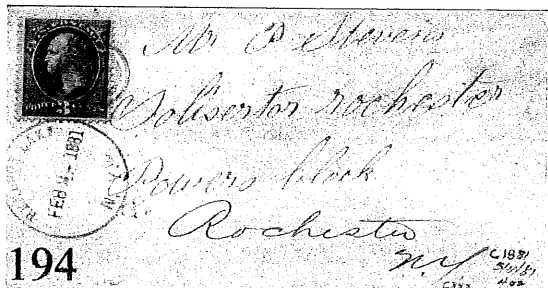 Mr P Stevens
Solisertor rochester
Powers block
Rochester
N.Y
FEB 1881
194